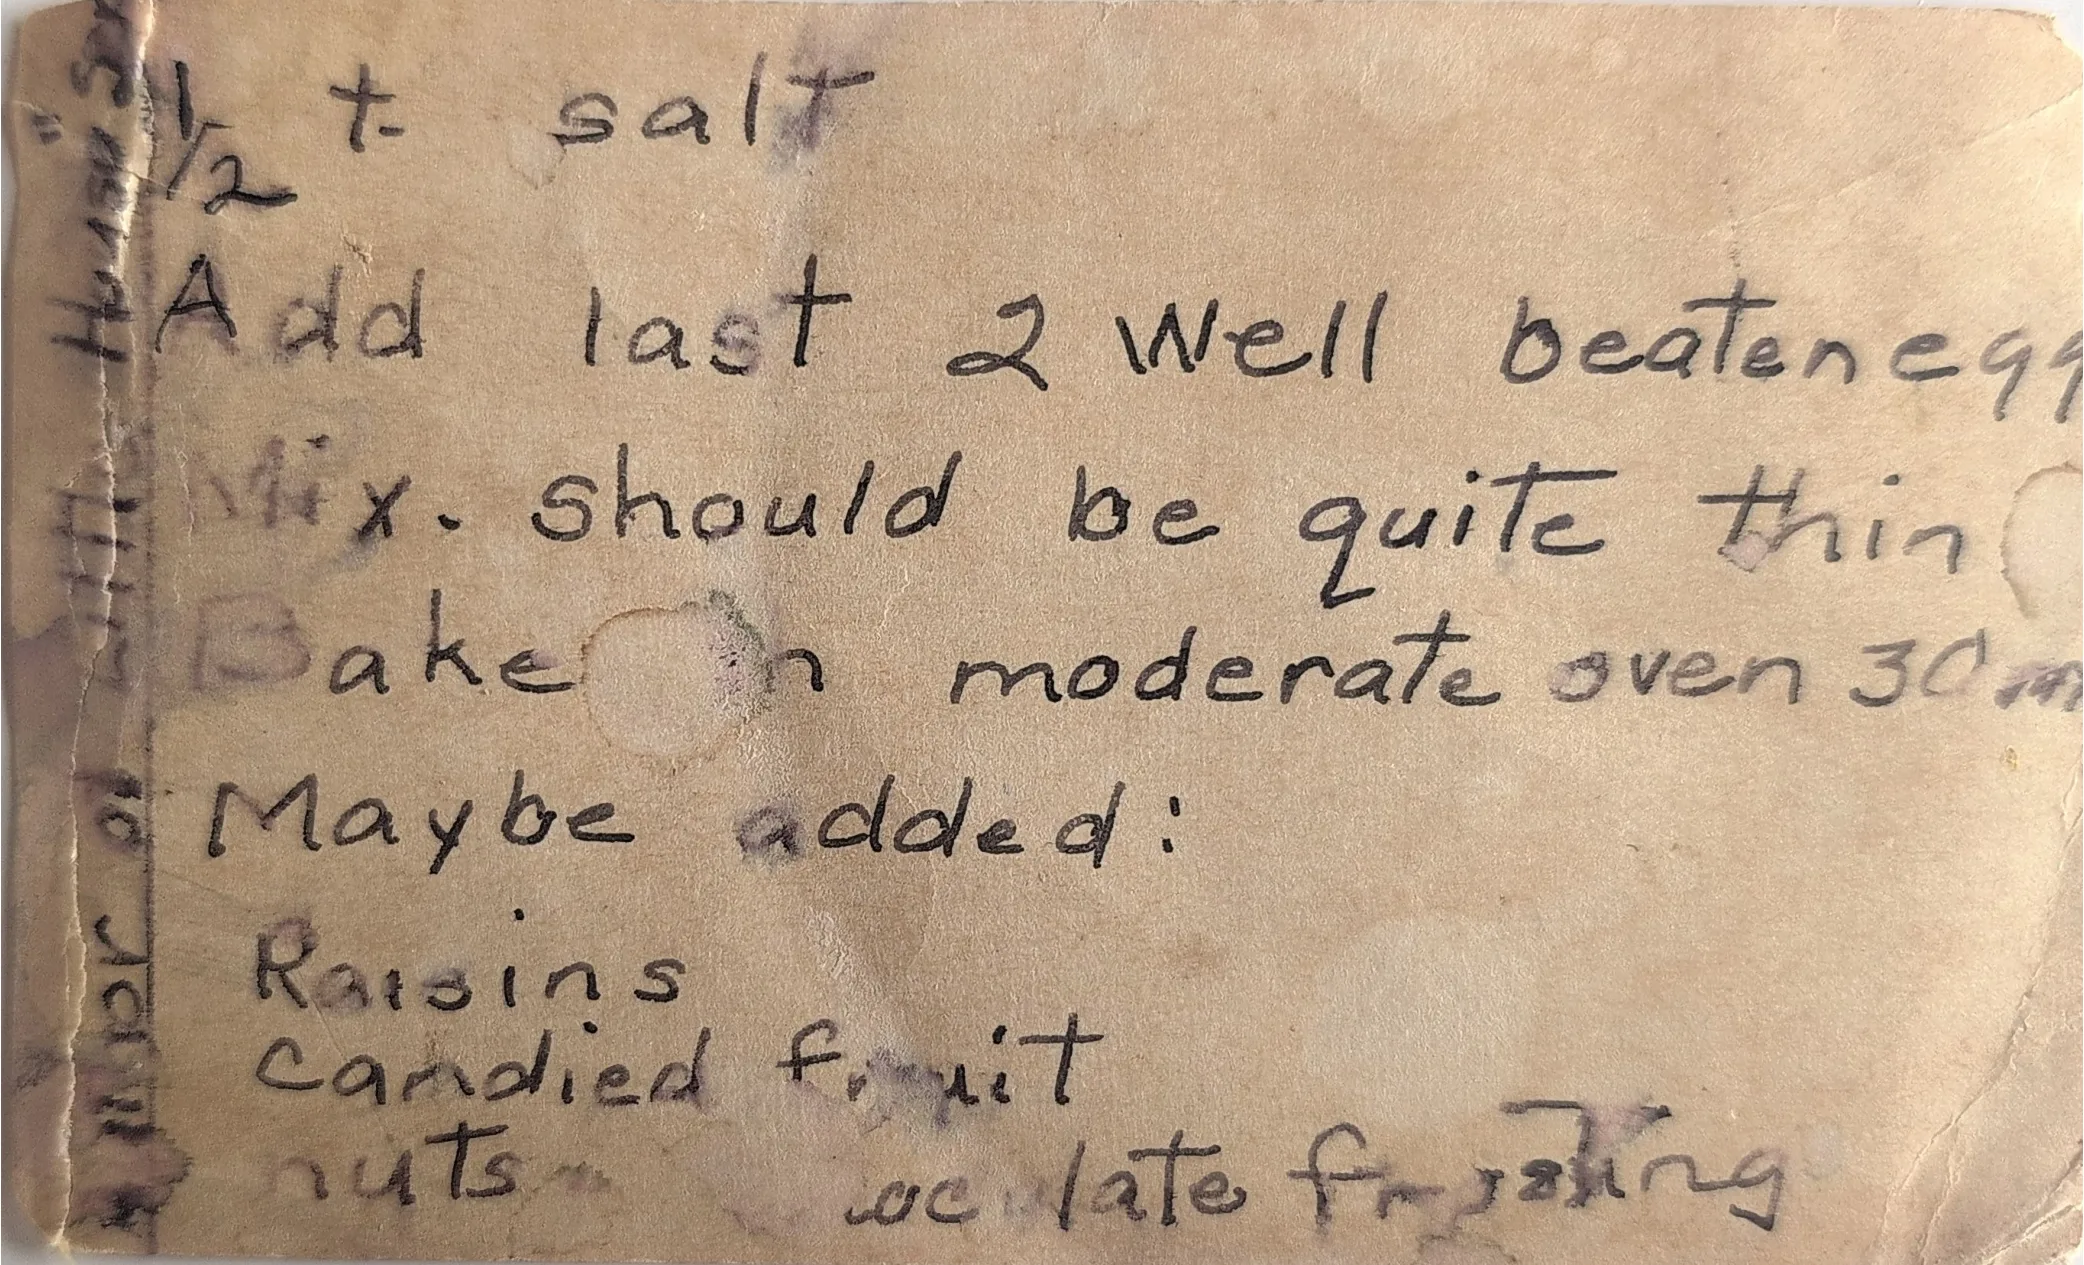 1/2 t. salt
Add last 2 Well beaten egg
Mix. should be quite thin
Bake in moderate oven 30 m
Maybe added:
Raisins
Candied fruit
nuts chocolate frosting